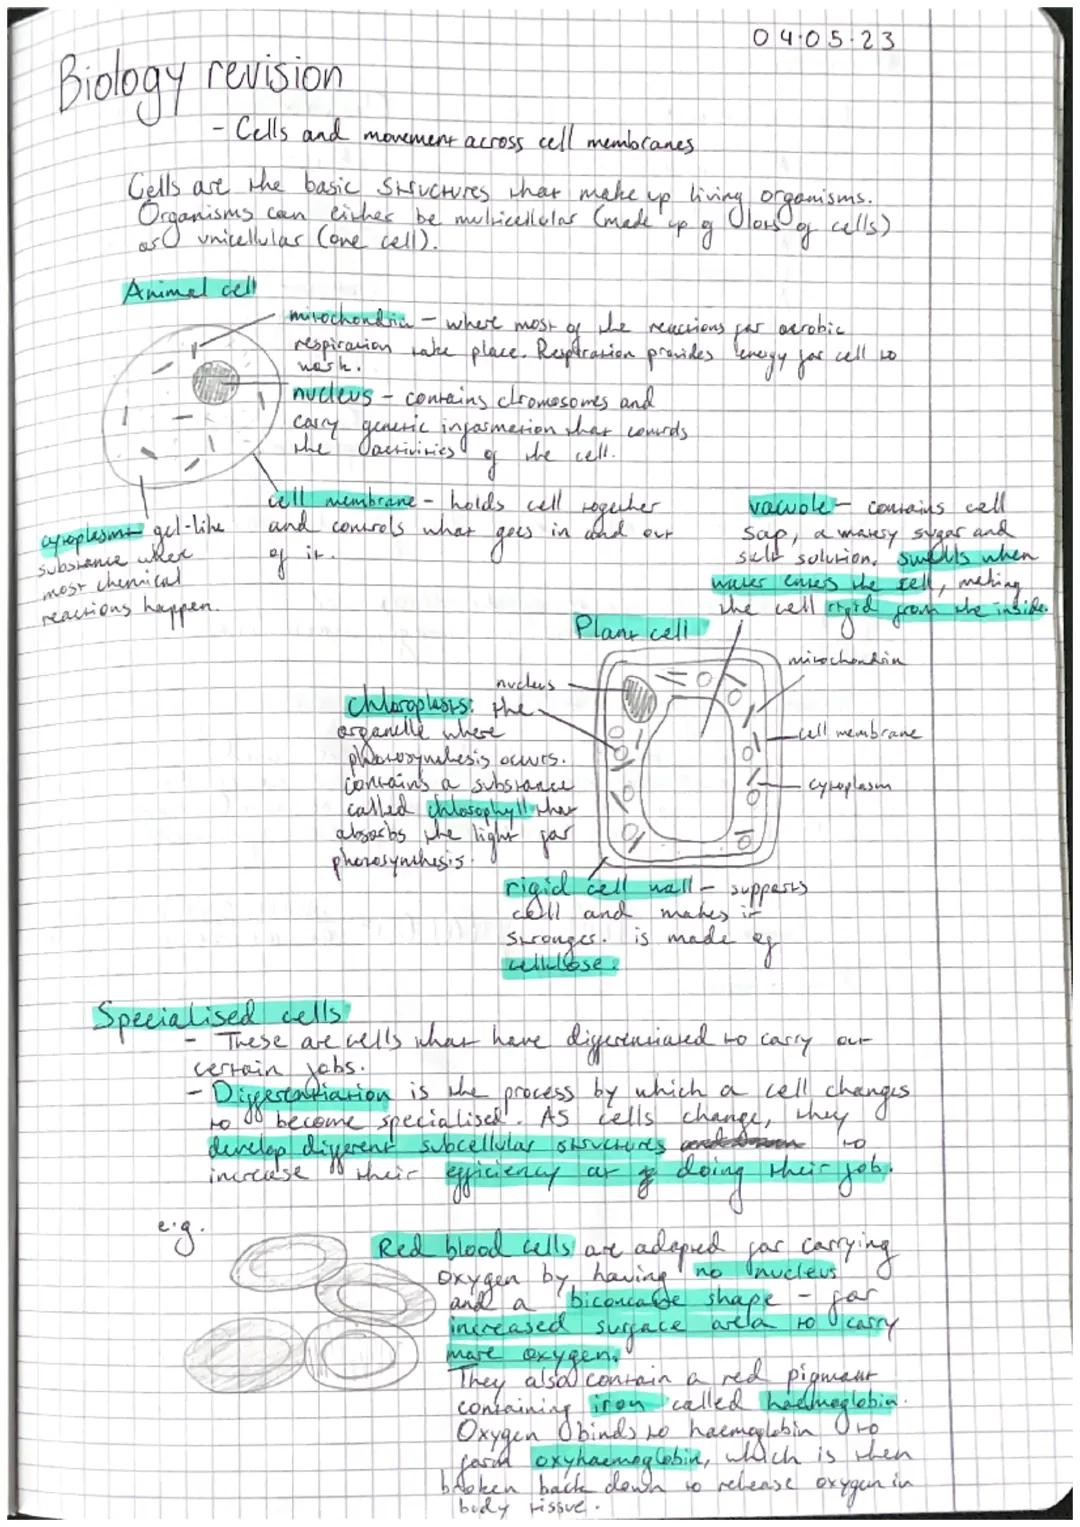 04.05.23
Biology revision
- Cells and movement across cell membranes
Cells are the basic structures that make up living organisms.
Organisms can either be multicellular (made up of lots of cells)
or unicellular (one cell).
Animal cell
mitochondria - where most of the reactions for aerobic
respiration take place. Respiration provides energy for cell to
work.
nucleus - contains chromosomes and
carry genetic information that controls
the activities of the cell.
cell membrane - holds cell together
and controls what goes in and out
of it.
cytoplasm - gel-like
substance where
most chemical
reactions happen.
vacuole - contains cell
sap, a watery sugar and
salt solution. swells when
water enters the cell, making
the cell rigid from the inside.
Plant cell
mitochondria
nucleus
cell membrane
cytoplasm
chloroplasts: the
organelle where
photosynthesis occurs.
contains a substance
called chlorophyll that
absorbs the light for
photosynthesis.
rigid cell wall - supports
cell and makes it
stronger. is made of
cellulose.
Specialised cells
- These are cells what have differentiated to carry out
certain jobs.
- Differentiation is the process by which a cell changes
to become specialised. As cells change, they
develop different subcellular structures to
increase their efficiency at doing their job.
e.g.
Red blood cells are adapted for carrying
oxygen by having no nucleus
and a biconcave shape - for
increased surface area to carry
more oxygen.
They also contain a red pigment
containing iron called haemoglobin.
Oxygen binds to haemoglobin to
form oxyhaemoglobin, which is then
broken back down to release oxygen in
body tissue.